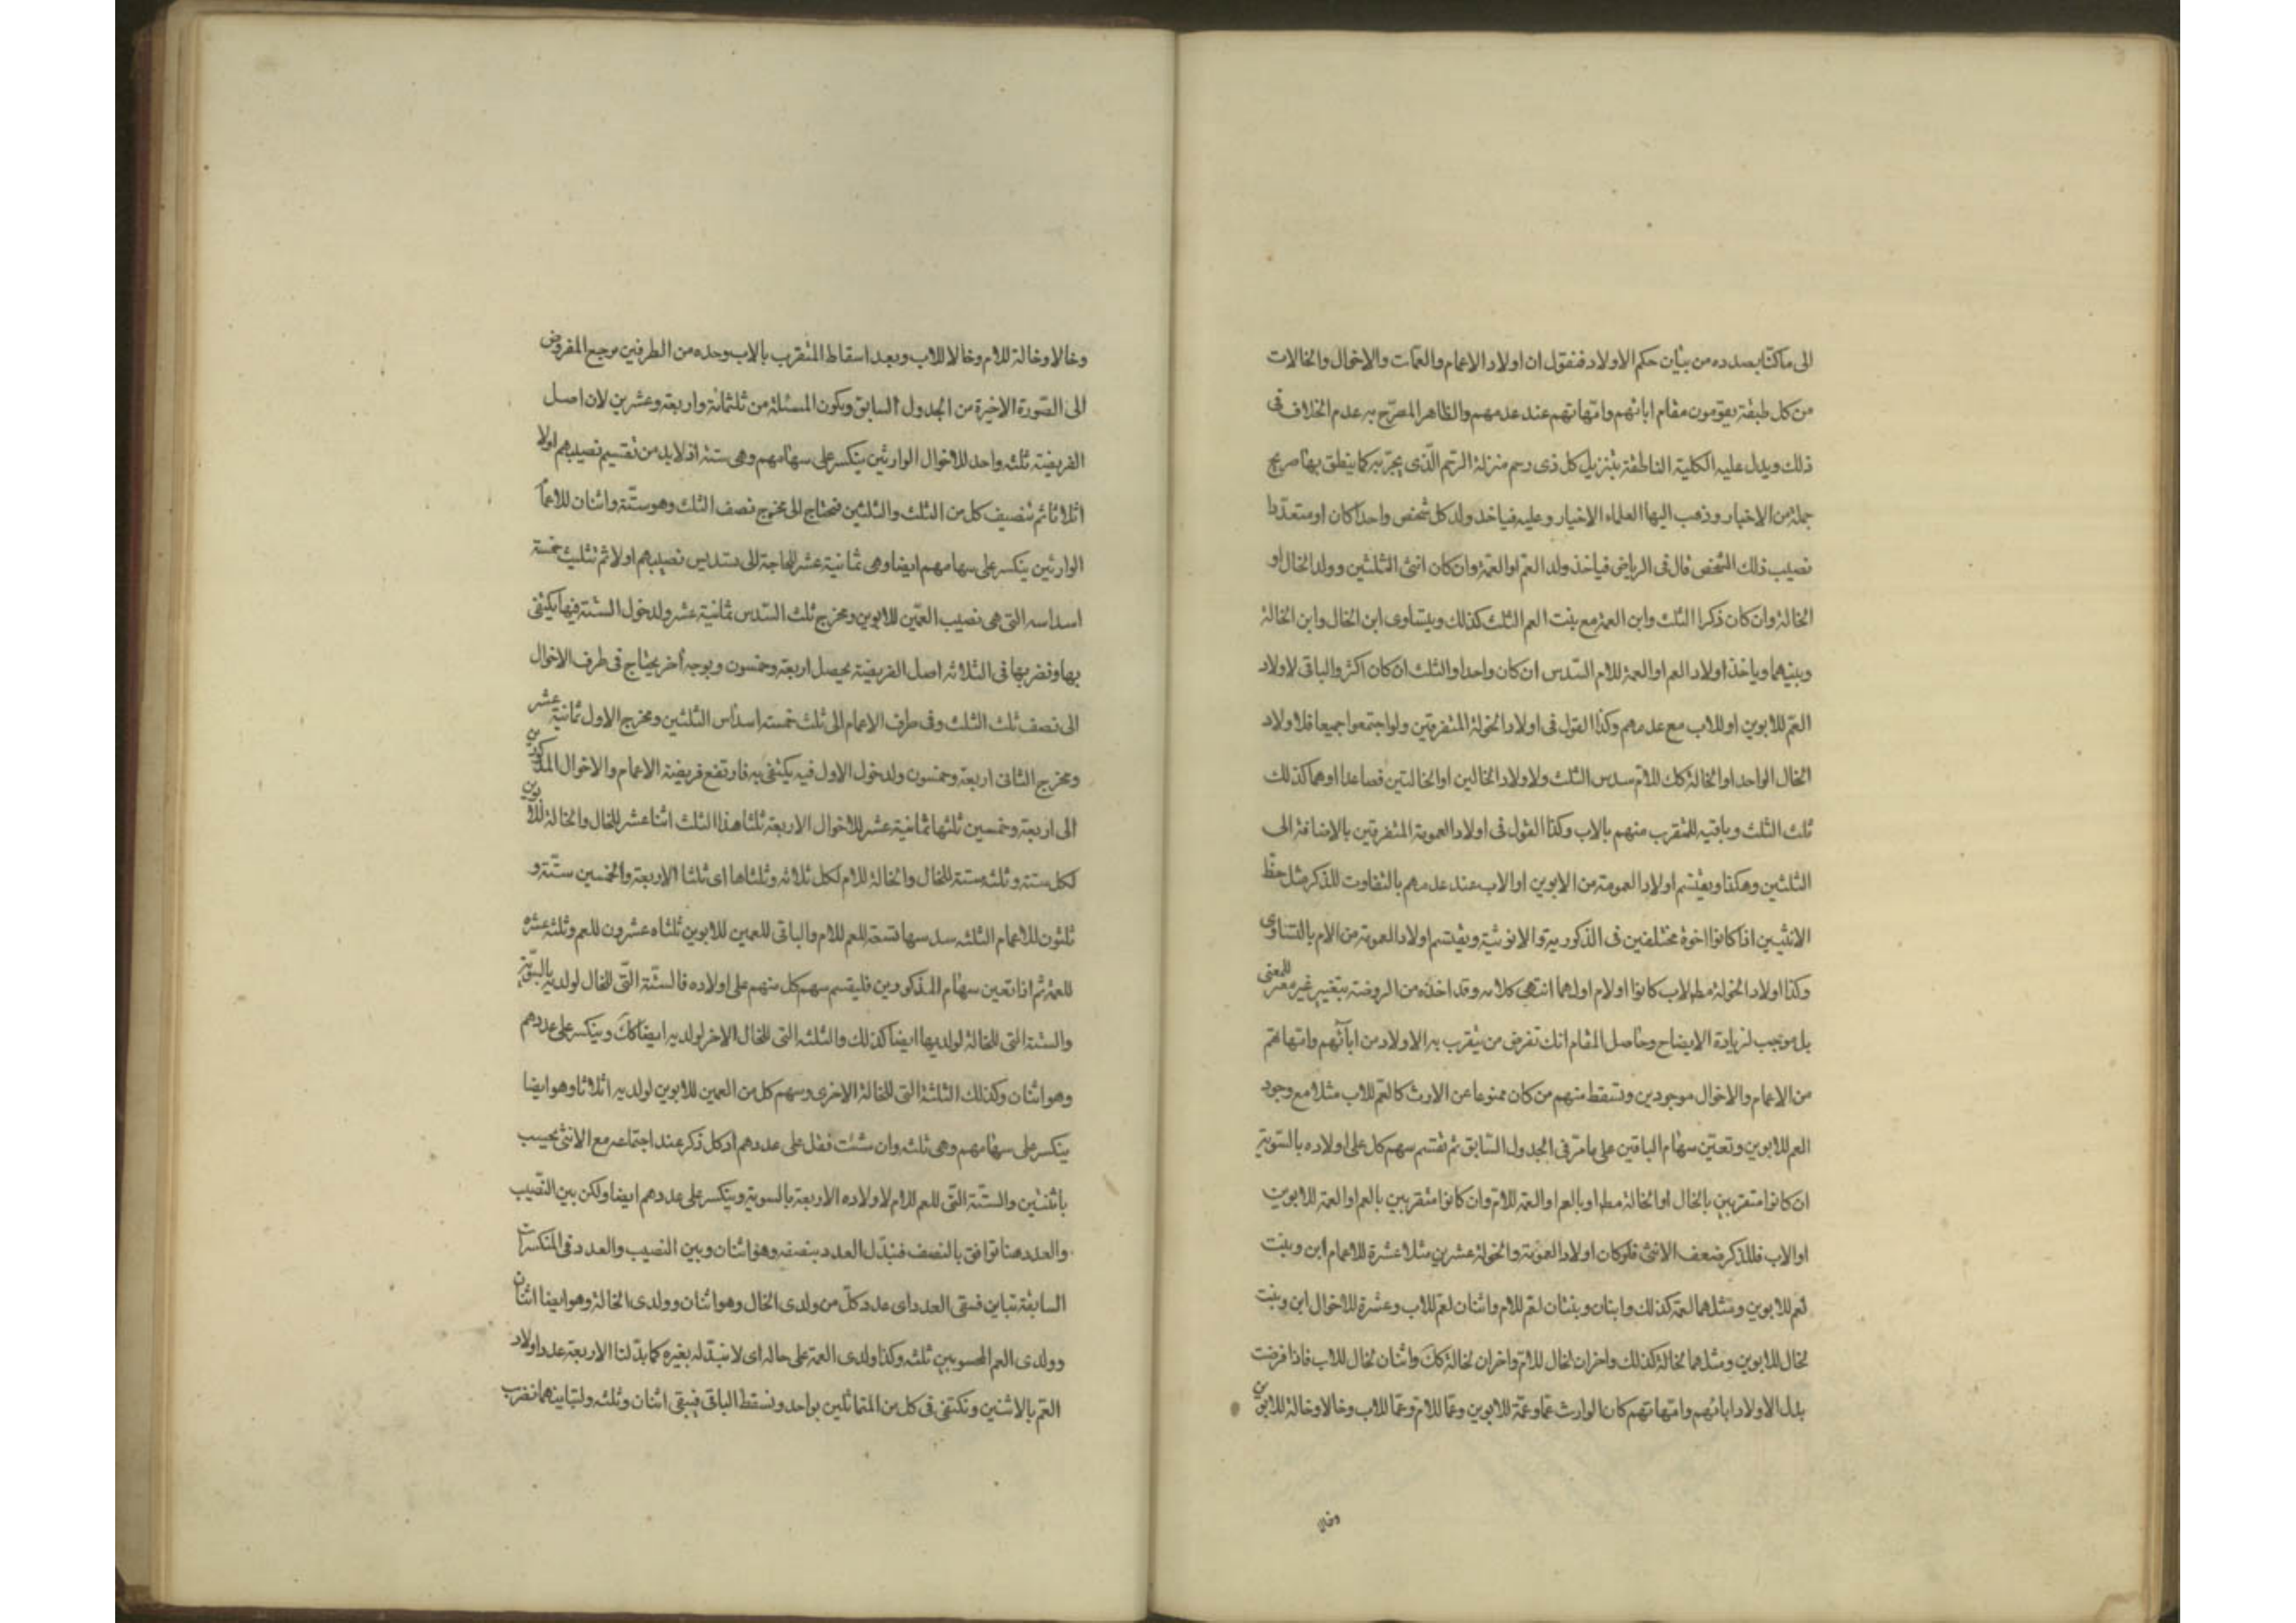 الى ما كنا بصدده من بيان حكم الاولاد فنقول ان اولاد الاعمام والعمات والاخوال والخالات
من كل طبقة يقومون مقام ابائهم وامهاتهم عند عدمهم والظاهر المصرح به عدم الخلاف فى
ذلك ويدل عليه الكلية الناطقة بتنزيل كل ذى رحم منزلة الرحم الذى يجر به كما ينطق بها صريح
جملة من الاخبار وذهب اليها العلماء الاخيار وعليه فياخذ ولد كل شخص واحدا كان او متعددا
نصيب ذلك الشخص قال فى الرياض فياخذ ولد العم او العمة وان كان انثى الثلثين وولد الخال او
الخالة وان كان ذكرا الثلث وابن العمة مع بنت العم الثلث كذلك ويتساوى ابن الخال وابن الخالة
وبنيهما وياخذ اولاد العم او العمة للام السدس ان كان واحدا والثلث ان كان اكثر والباقى لاولاد
العم للابوين او للاب مع عدمهم وكذا القول فى اولاد الخولة المتفرقين ولو اجتمعوا جميعا فلاولاد
الخال الواحد او الخالة كك للام سدس الثلث ولاولاد الخالين او الخالتين فصاعدا او هما كذلك
ثلث الثلث وباقيه للمتقرب منهم بالاب وكذا القول فى اولاد العمومة المتفرقين بالاضافة الى
الثلثين وهكذا ويقتسم اولاد العمومة من الابوين او الاب عند عدمهم بالتفاوت للذكر مثل حظ
الانثيين اذا كانوا اخوة مختلفين فى الذكورية والانوثية ويقتسم اولاد العمومة من الام بالتساوى
وكذا اولاد الخولة مط لاب كانوا او لام او لهما انتهى كلامه وقد اخذه من الروضة بتغيير غير مغير للمعنى
بل موجب لزيادة الايضاح وحاصل المقام انك تفرض من يتقرب به الاولاد من ابائهم وامهاتهم
من الاعمام والاخوال موجودين وتسقط منهم من كان ممنوعا عن الارث كالعم للاب مثلا مع وجود
العم للابوين وتعين سهام الباقين على ما مر فى الجدول السابق ثم تقسم سهم كل على اولاده بالسوية
ان كانوا متقربين بالخال او الخالة مط او بالعم او العمة للام وان كانوا متقربين بالعم او العمة للابوين
او الاب فللذكر ضعف الانثى فلو كان اولاد العمومة والخولة عشرين مثلا عشرة للاعمام ابن وبنت
لعم للابوين ومثلهما لعمة كذلك وابنان وبنتان لعم للام واثنان لعم للاب وعشرة للاخوال ابن وبنت
لخال للابوين ومثلهما لخالة كذلك واخران لخال للام واخران لخالة كك واثنان لخال للاب فاذا فرضت
بدل الاولاد ابائهم وامهاتهم كان الوارث عما وعمة للابوين وعما للام وعما للاب وخالا وخالة للابوين
وخالا
وخالا وخالة للام وخالا للاب وبعد اسقاط المتقرب بالاب وحده من الطرفين مرجع المفروض
الى الصورة الاخيرة من الجدول السابق ويكون المسئلة من ثلثمائة واربعة وعشرين لان اصل
الفريضة ثلثه واحد للاخوال الوارثين ينكسر على سهامهم وهى ستة اذ لابد من تقسيم نصيبهم اولا
اثلاثا ثم تنصيف كل من الثلث والثلثين فنحتاج الى مخرج نصف الثلث وهو ستة واثنان للاعمام
الوارثين ينكسر على سهامهم ايضا وهى ثمانية عشر للحاجة الى تسديس نصيبهم اولا ثم تثليث خمسة
اسداسه التى هى نصيب العمين للابوين ومخرج ثلث السدس ثمانية عشر ولدخول الستة فيها يكتفى
بها ونضربها فى الثلاثة اصل الفريضة يحصل اربعة وخمسون وبوجه اخر يحتاج فى طرف الاخوال
الى نصف ثلث الثلث وفى طرف الاعمام الى ثلث خمسة اسداس الثلثين ومخرج الاول ثمانية عشر
ومخرج الثانى اربعة وخمسون ولدخول الاول فيه يكتفى به فارتفع فريضة الاعمام والاخوال المذكورين
الى اربعة وخمسين ثلثها ثمانية عشر للاخوال الاربعة ثلثا هذا الثلث اثنا عشر للخال والخالة للابوين
لكل ستة وثلثه ستة للخال والخالة للام لكل ثلاثة وثلثاها اى ثلثا الاربعة والخمسين ستة و
ثلثون للاعمام الثلثه سدسها ستة للعم للام والباقى للعمين للابوين ثلثاه عشرون للعم وثلثه عشرة
للعمة ثم اذا تعين سهام المذكورين فليقسم سهم كل منهم على اولاده فالستة التى للخال لولديه بالسوية
والستة التى للخالة لولديها ايضا كذلك والثلثة التى للخال الاخر لولديه ايضا كك وينكسر على عددهم
وهو اثنان وكذلك الثلثة التى للخالة الاخرى وسهم كل من العمين للابوين لولديه اثلاثا وهو ايضا
ينكسر على سهامهم وهى ثلثه وان شئت فقل على عددهم اذ كل ذكر عند اجتماعه مع الانثى يحسب
باثنين والستة التى للعم للام لاولاده الاربعة بالسوية وينكسر على عددهم ايضا ولكن بين النصيب
والعدد هنا توافق بالنصف فنبدل العدد بنصفه وهو اثنان وبين النصيب والعدد فى المنكسرات
السابقة تباين فيبقى العدد اى عدد كل من ولدى الخال وهو اثنان وولدى الخالة وهو ايضا اثنان
وولدى العم المحسوبين ثلثه وكذا ولدى العمة على حاله اى لا نبدله بغيره كما بدلنا الاربعة عدد اولاد
العم بالاثنين ونكتفى فى كل من المتماثلين بواحد ونسقط الباقى فيبقى اثنان وثلثه ولتباينهما نضرب